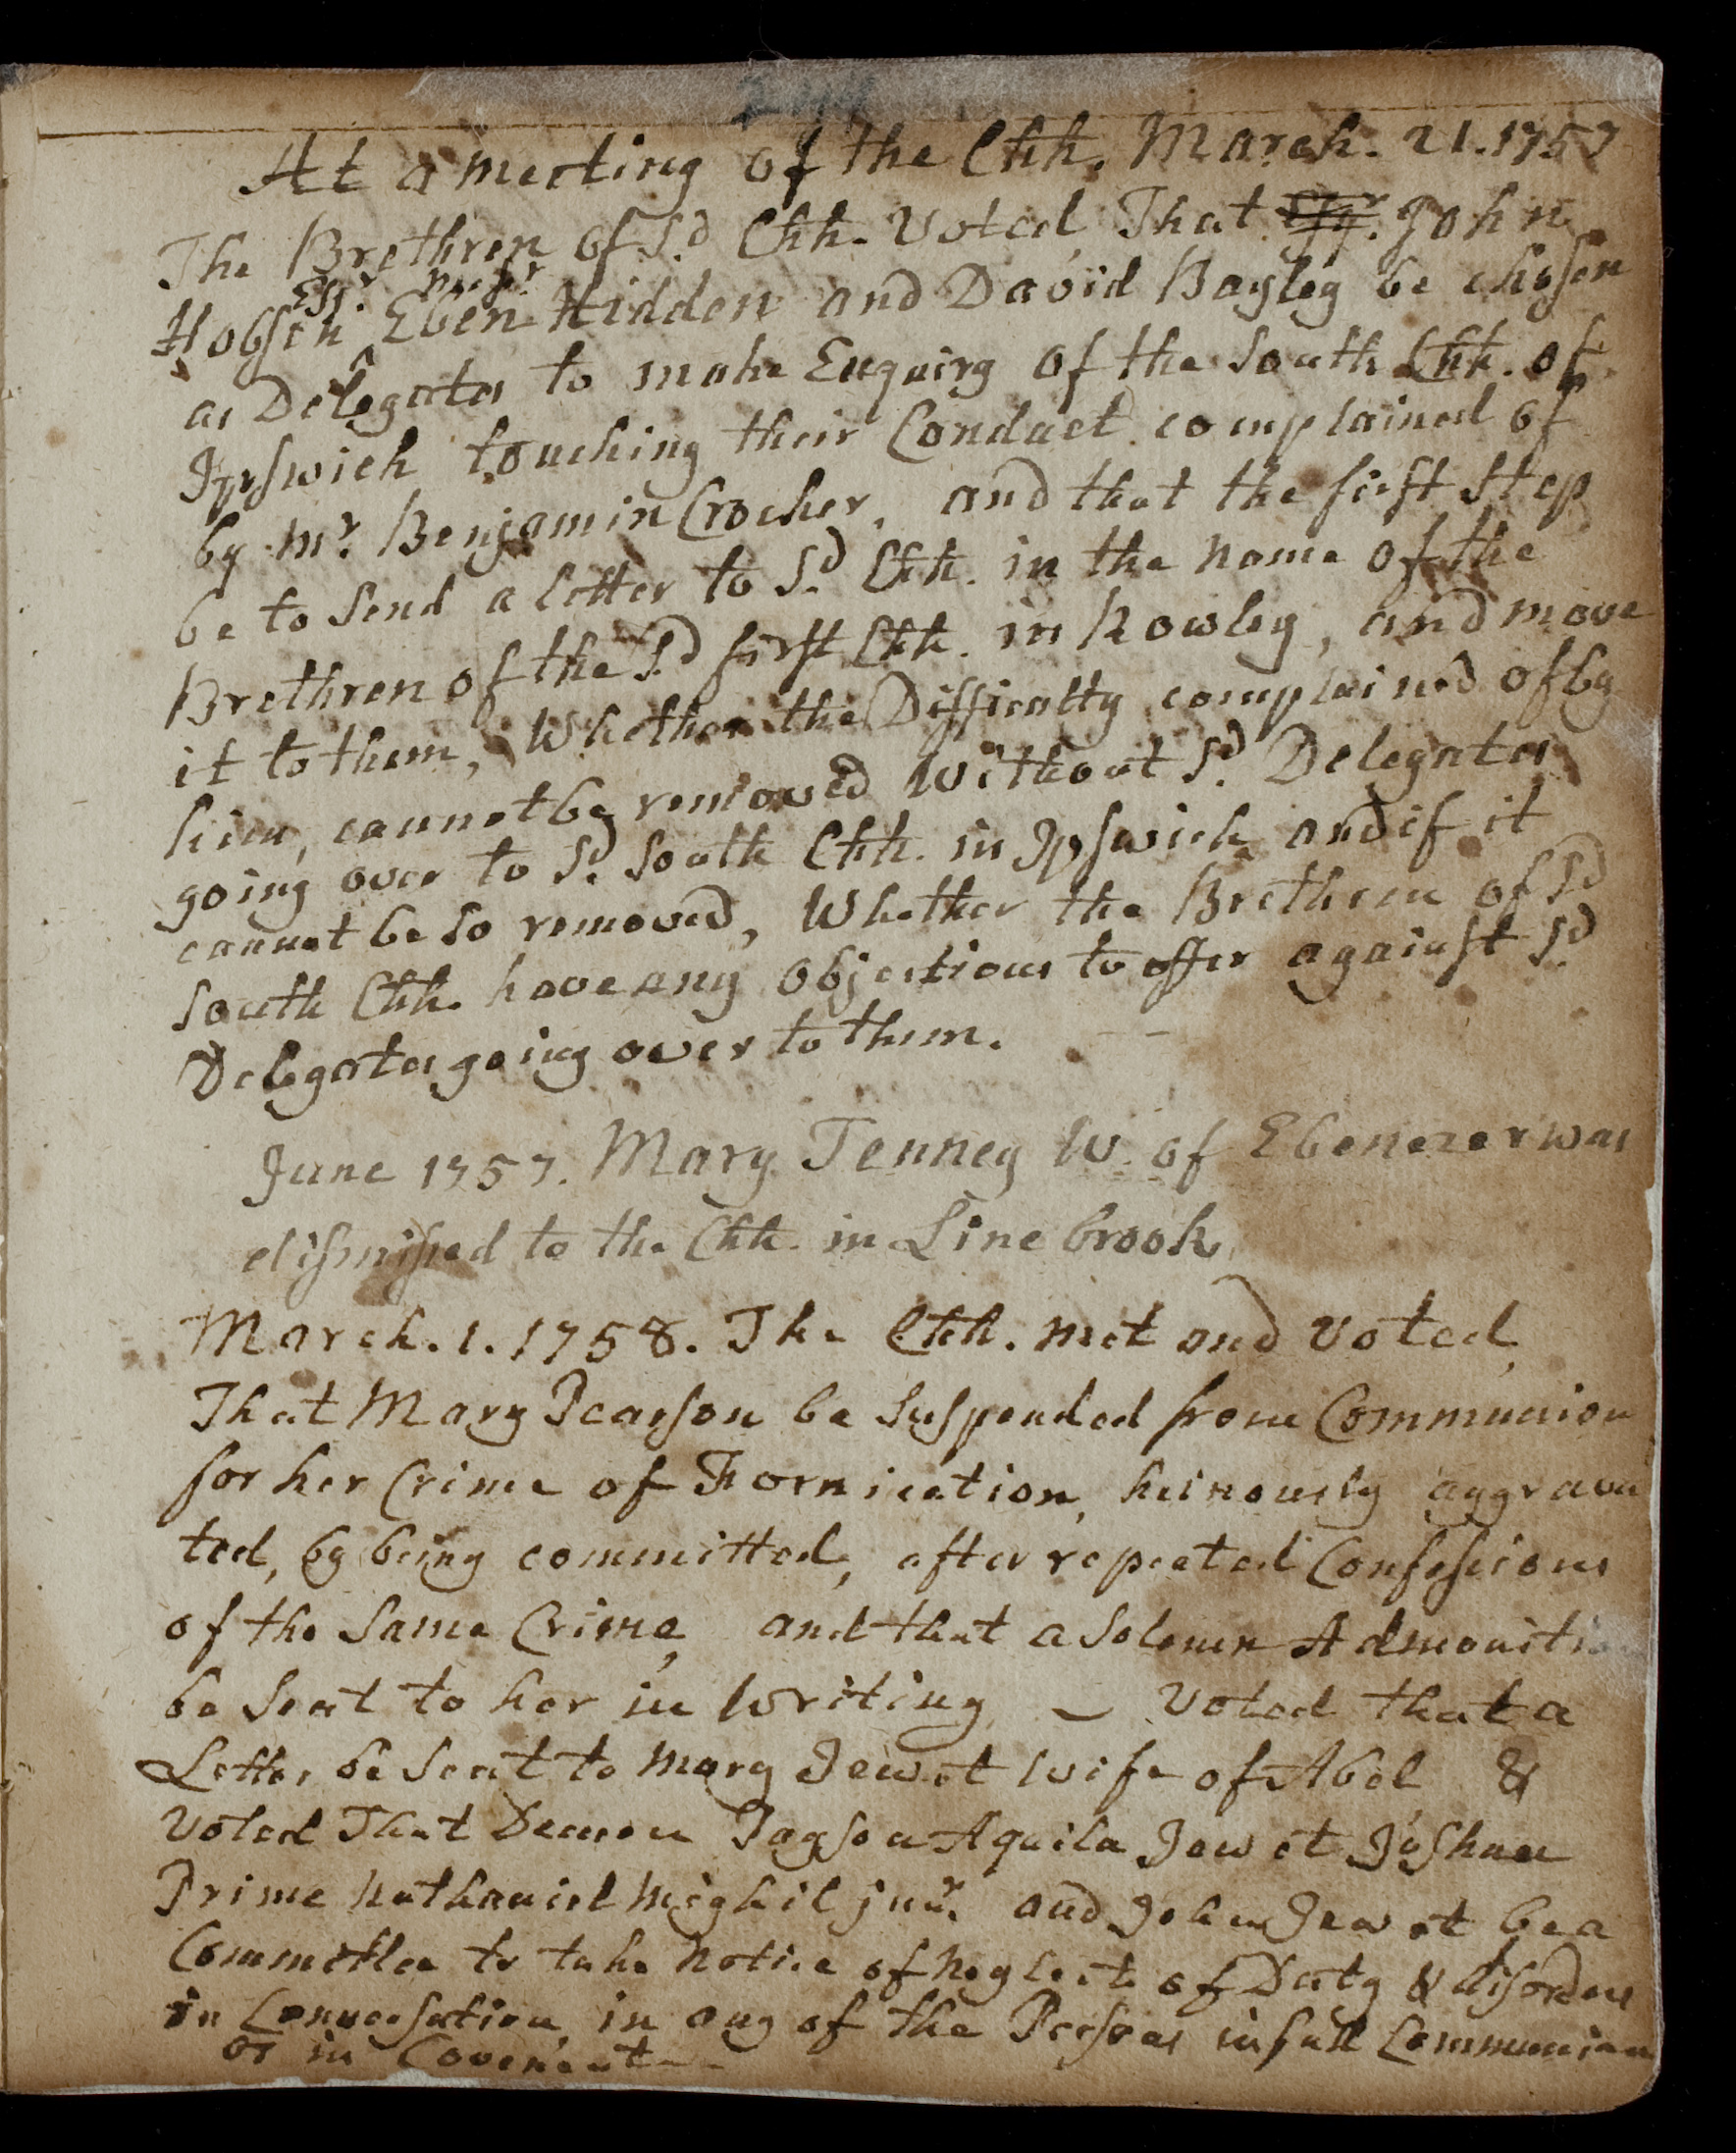 At a meeting of the Chh. March. 21. 1757
The Brethren of Sd Chh. Voted That Esqr. John
Hobson Esqr. Eben Hidden and David Bayley be chosen
as Delegates to make Enquiry of the South Chh. of
Ipswich touching their Conduct complained of
by Mr. Benjamin Crocker, and that the first Step
be to Send a letter to Sd Chh. in the name of the
Brethren of the Sd first Chh. in Rowley, and move
it to them, Whether the Difficulty complained of by
him, cannot be removed Without Sd Delegates
going over to Sd South Chh. in Ipswich and if it
cannot be so removed, Whether the Brethren of Sd
South Chh. have any Objections to offer against Sd
Delegates going over to them.
June 1757. Mary Tenney W. of Ebenezer was
dismissed to the Chh. in Line brook
March. 1. 1758. The Chh. met and Voted
That Mary Pearson be Suspended from Communion
for her Crime of Fornication, heinously aggrava
ted, by being committed, after repeated Confessions
of the Same Crime, and that a Solemn Admonitio
be Sent to her in Writing – Voted that a
Letter be Sent to Mary Jewet Wife of Abel &
Voted That Deacon Payson Aquila Jewet Joshua
Prime Nathaniel Mighil junr. and John Jewet be a
Committee to take Notice of Neglects of Duty & disorders
in Conversation, in any of the Persons in full Communion
or in Covenant--